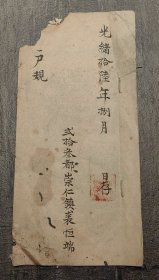 光緒拾陸年捌月 日存
弍拾叁都崇仁鎮裘恒瑞
户規